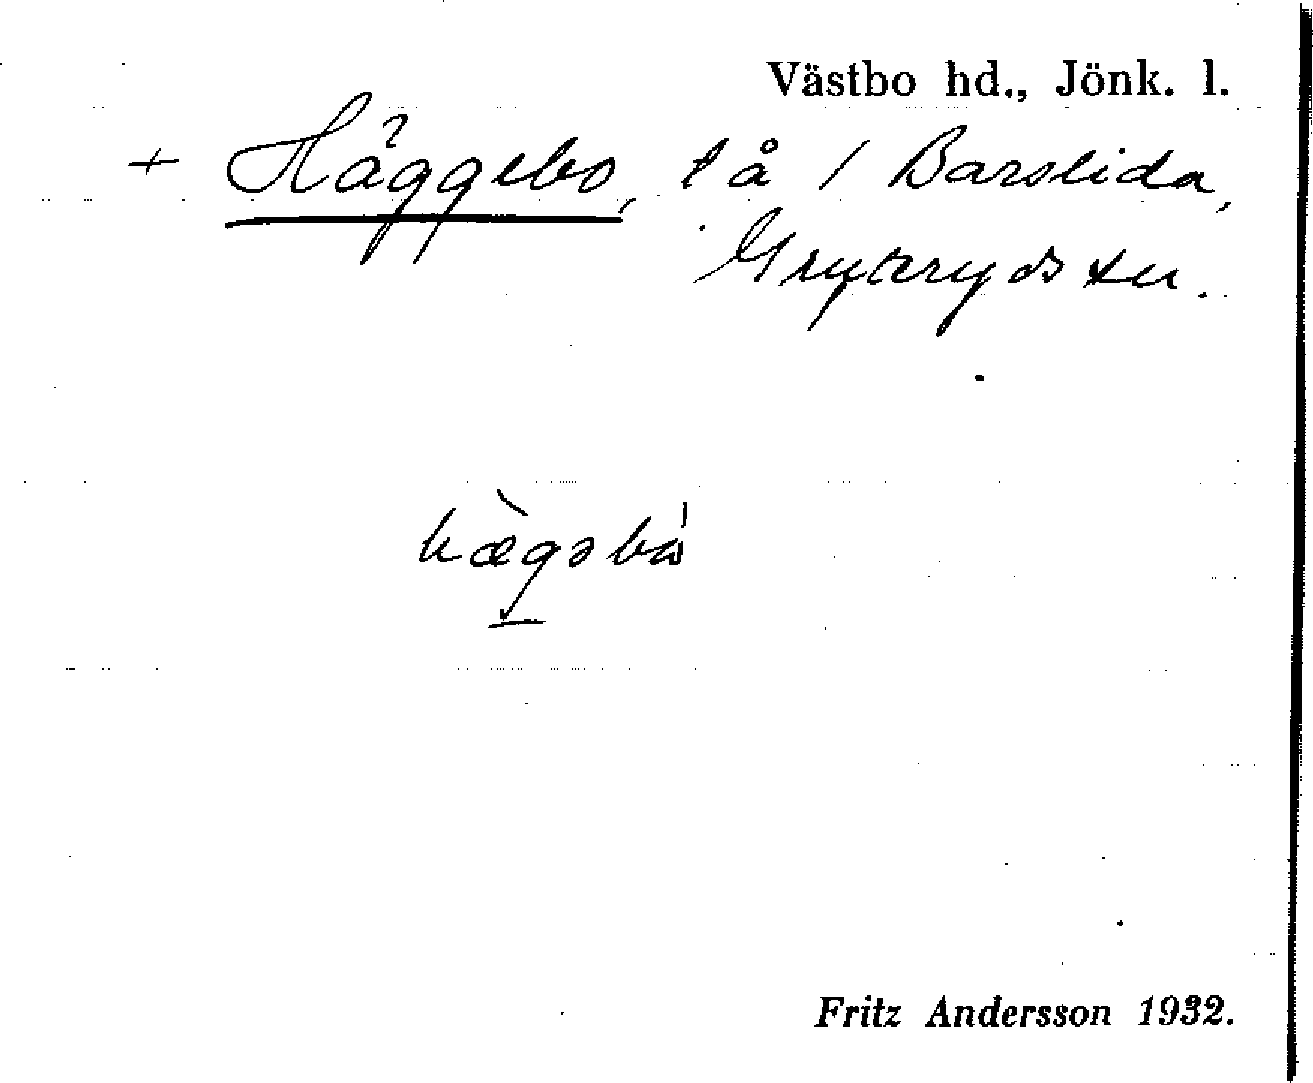 Västbo hd., Jönk. l.
+ Häggebo, t å / Barslida,
Gryteryds sn.
hæ̀gəbo
Fritz Andersson 1932.